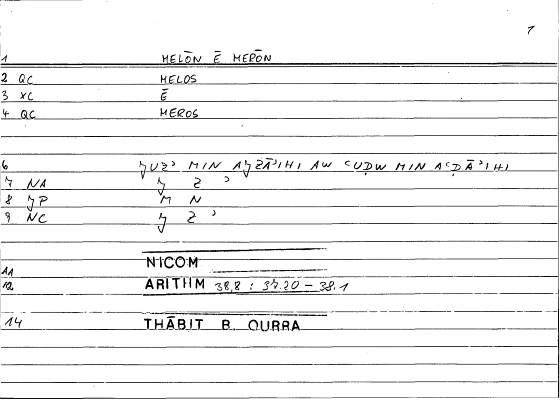 1
1 MELŌN Ē MERŌN
2 QC MELOS
3 XC Ē
4 QC MEROS
6 JUZʾ MIN AJZĀʾIHI AW ʿUḌW MIN AʿḌĀʾIHI
7 NA J Z ʾ
8 JP M N
9 NC J Z ʾ
NICOM
11
12 ARITHM 38.8 : 37.20 – 38.1
14 THĀBIT B. QURRA